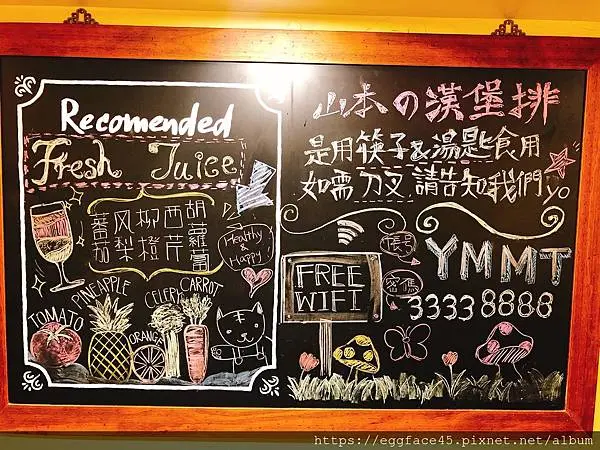 Recomended
Fresh Juice
蕃茄
风梨
柳橙
西芹
胡蘿蔔
Healthy & Happy
TOMATO
PINEAPPLE
ORANGE
CELERY
CARROT
山本の漢堡排
是用筷子&湯匙食用
如需刀叉請告知我們yo
FREE
WIFI
帳号
YMMT
密馬
33338888
https://eggface45.pixnet.net/album